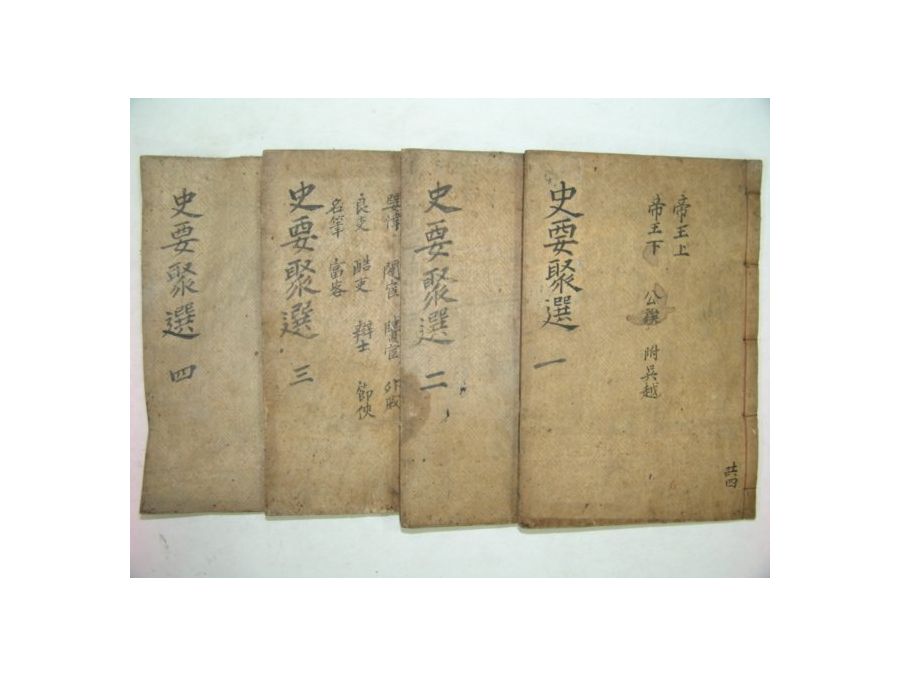 史要聚選 一
帝王上
帝王下 公族 附吳越
共四
史要聚選 二
史要聚選 三
良吏 酷吏 辯士 節俠
名筆 富客
史要聚選 四